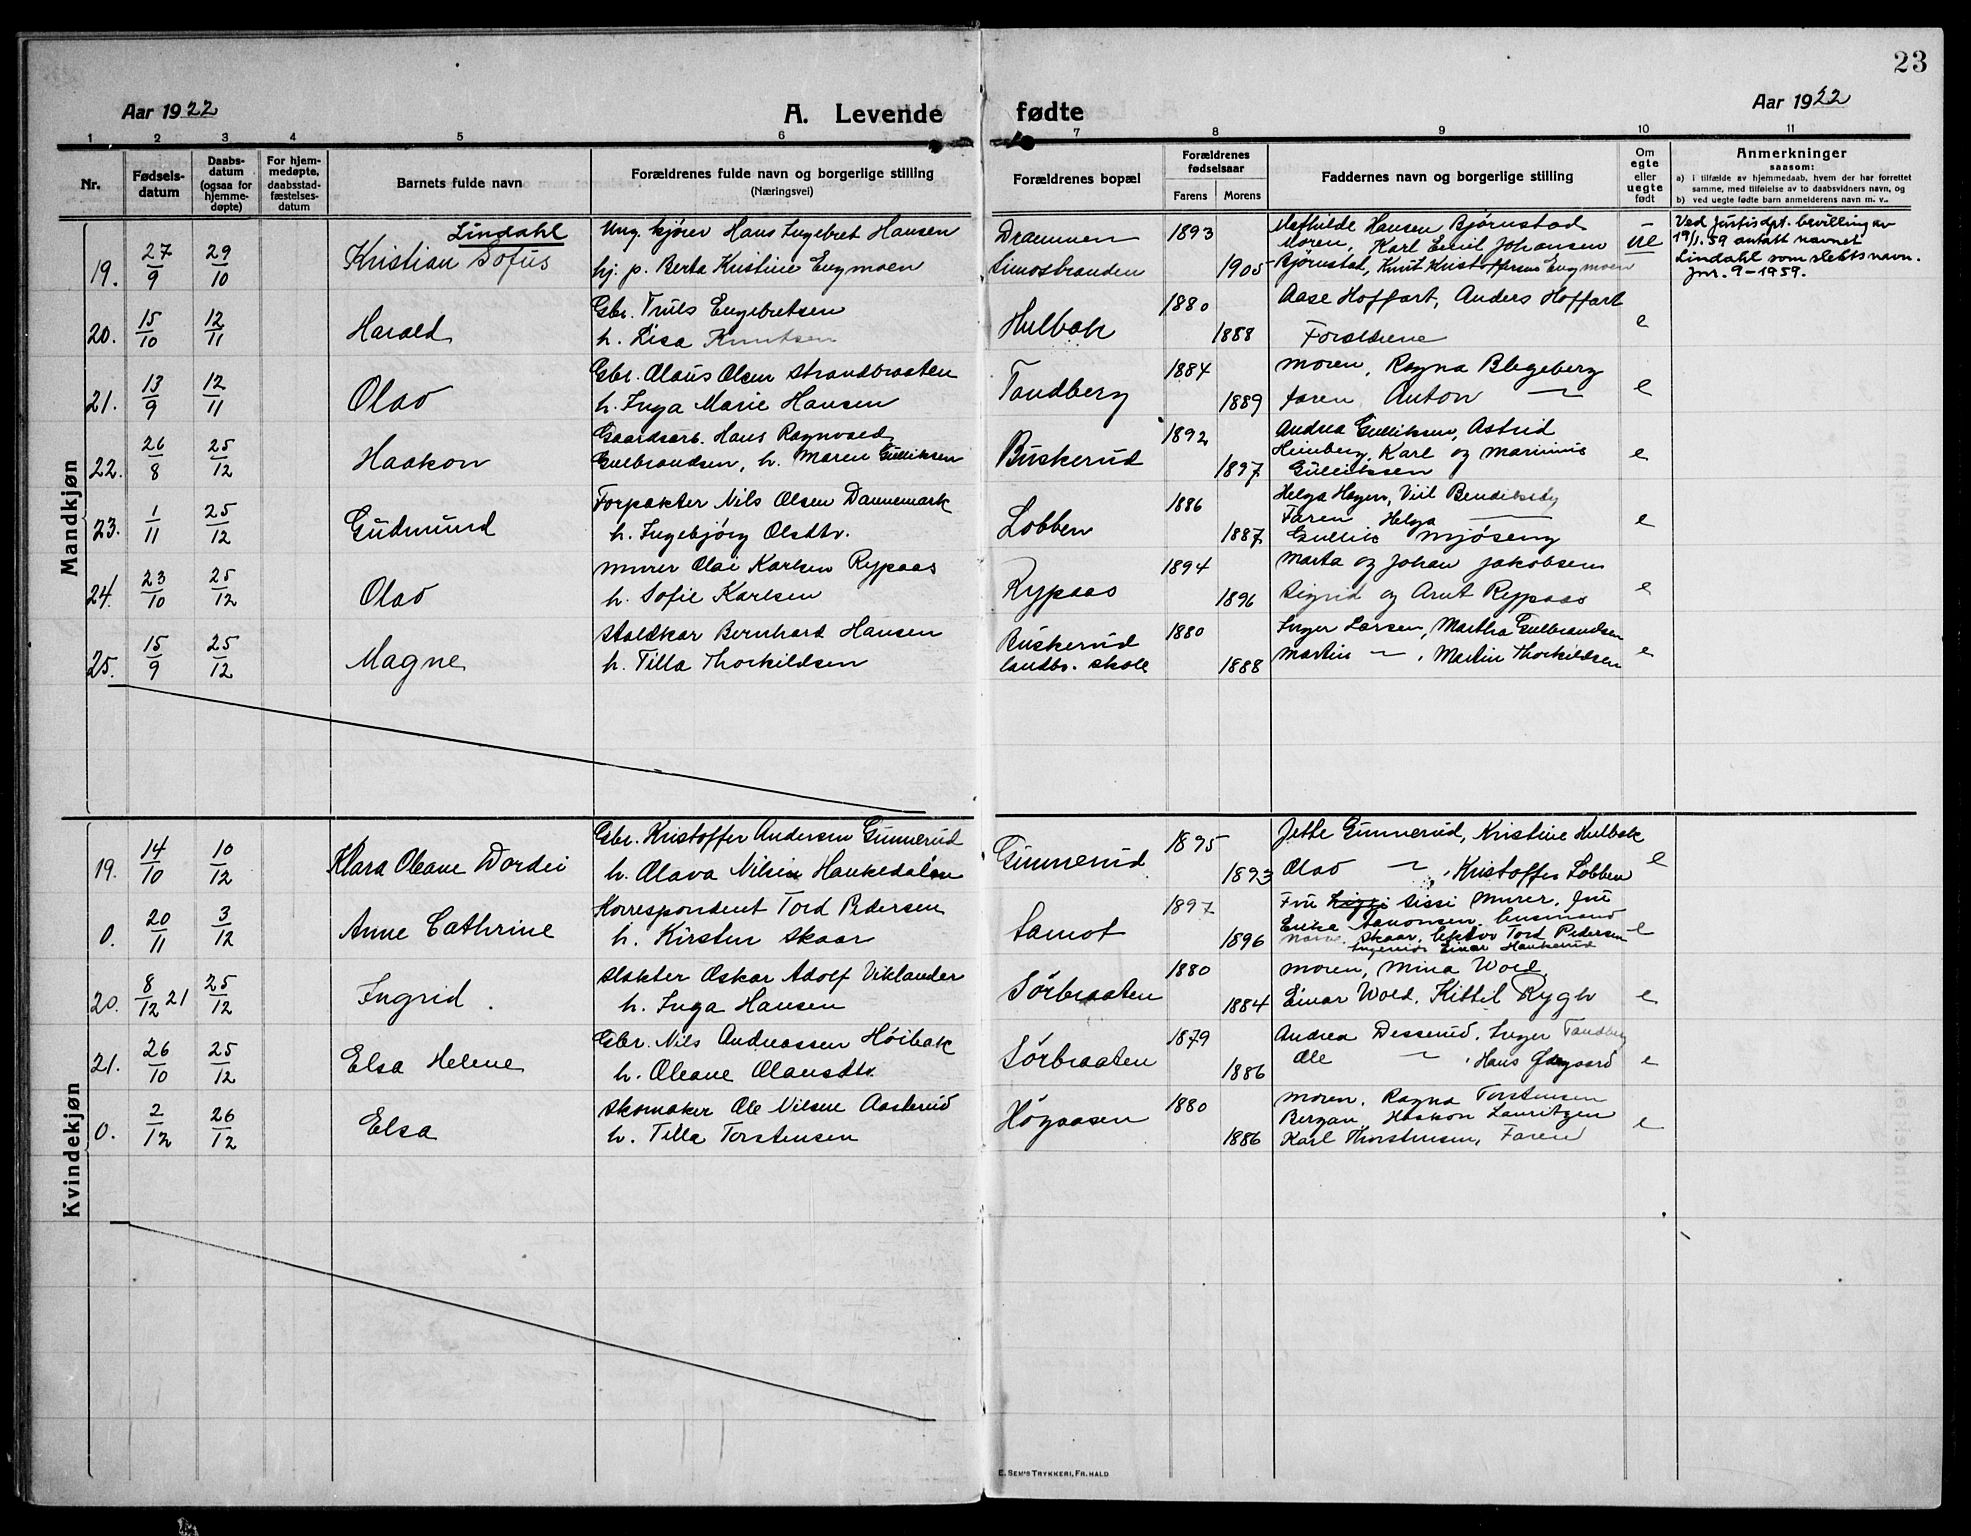 23
Aar 1922
A. Levende fødte
Aar 1922
1 2 3 4 5 6 7 8 9 10 11
Nr.
Fødsels-
datum
Daabs-
datum
(ogsaa for
hjemme-
døpte)
For hjem-
medøpte,
daabsstad-
fæstelses-
datum
Barnets fulde navn
Forældrenes fulde navn og borgerlige stilling
(Næringsvei)
Forældrenes bopæl
Forældrenes
fødselsaar
Farens Morens
Faddernes navn og borgerlige stilling
Om
egte
eller
uegte
født
Anmerkninger
saasom:
a) i tilfælde av hjemmedaab, hvem der har forrettet
samme, med tilføielse av to daabsvidners navn, og
b) ved uegte fødte barn anmelderens navn m. v..
Mandkjøn
19. 27/9 29/10
Lindahl
Kristian Sofus
Ung. kjører Hans Ingebret Hansen
hj. p. Berta Kristine Engmoen
Drammen
Simosbranden
1893
1905
Mathilde Hansen Bjørnstad
Moren, Karl Emil Johansen
Bjørnstad, Knut Kristoffersen Engmoen
ue
Ved Justisdpt. bevilling av
19/1.59 antatt navnet
Lindahl som slektsnavn.
Jnr. 9-1959.
20. 15/10 12/11
Harald
Gbr. Truls Engebretsen
h. Lisa Knutsen
Hulbak
1880
1888
Aase Hoffart, Anders Hoffart
Forældrene
e
21. 13/9 12/11
Olav
Gbr. Olaus Olsen Strandbraaten
h. Inga Marie Hansen
Tandberg
1884
1889
Moren, Ragna Blegeberg
Faren, Anton —
e
22. 26/8 25/12
Haakon
Gaardsarb. Hans Ragnvald
Gulbrandsen, h. Maren Gulliksen
Buskerud
1892
1897
Andrea Gulliksen, Astrid
Heimberg, Karl og Marinius
Gulliksen
e
23. 1/11 25/12
Gudmund
Forpakter Nils Olsen Dannemark
h. Ingebjørg Olsdtr.
Lobben
1886
1887
Helga Hagen, Bendiksby
Faren Helga —
Gullik Mjøseng
e
24. 23/10 25/12
Olav
Murer Olai Karlsen Rypaas
h. Sofie Karlsen
Rypaas
1894
1896
Marta og Johan Jakobsen
Sigrid og Arnt Rypaas
e
25. 15/9 25/12
Magne
Staldkar Bernhard Hansen
h. Tilla Thorkildsen
Buskerud
landbr. skole
1880
1888
Inger Larsen, Martha Gulbrandsen
Martin —, Martin Thorkildsen
e
Kvindekjøn
19. 14/10 10/12
Klara Oleane Dordei
Gbr. Kristoffer Andersen Gunnerud
h. Olava Nilsen Hankedalen
Gunnerud
1895
1893
Jette Gunnerud, Kristine Hulbak
Olav —, Kristoffer Lobben
e
0. 20/11 3/12
Anne Cathrine
Korrespondent Tord Pedersen
h. Kirsten Skaar
Samot
1897
1896
Fru Sissi Murer, Fru
Erike Aanonsen,
Skaar, lektor Tord Pedersen
Einar
e
20. 8/12 21 25/12
Ingrid.
Slakter Oskar Adolf Viklander
h. Inga Hansen
Sørbraaten
1880
1884
Moren, Mina Wold,
Einar Wold, Kittil Rygh
e
21. 26/10 25/12
Elsa Helene
Gbr. Nils Andreassen Høibak
h. Oleane Olausdtr.
Sørbraaten
1879
1886
Andrea Desserud, Inger Tandberg
Ole —, Hans
e
0. 2/12 26/12
Elsa
Skomaker Ole Nilsen Aasterud
h. Tilla Torstensen
Høgaasen
1880
1886
Moren, Ragna Torstensen
Bergan, Haakon Lauritzen
Karl Thorstensen, Faren
e
E. SEM'S TRYKKERI, FR.HALD